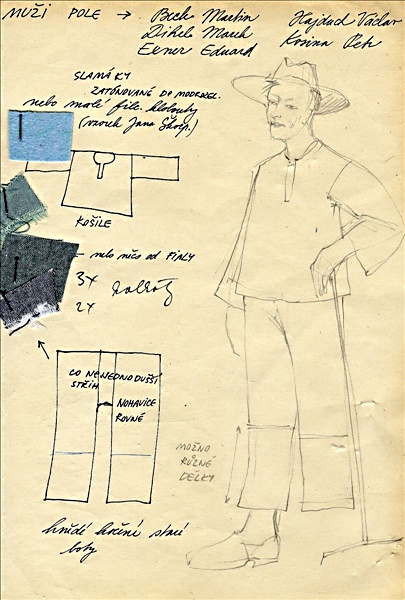 MUŽI POLE → Beck Martin Hajduch Václav
Dihel Marek Kosina Petr
Exner Eduard
SLAMÁKY
ZATÓNOVANÉ DO MODROZEL.
nebo malé filc. klobouky
(vzorek Jana Škop.)
KOŠILE
nebo něco od FIALY
3x
2x
CO NEJJEDNODUŠŠÍ
STŘIH
NOHAVICE
ROVNÉ
MOŽNO
RŮZNÉ
DÉLKY
hnědé kožené staré
boty